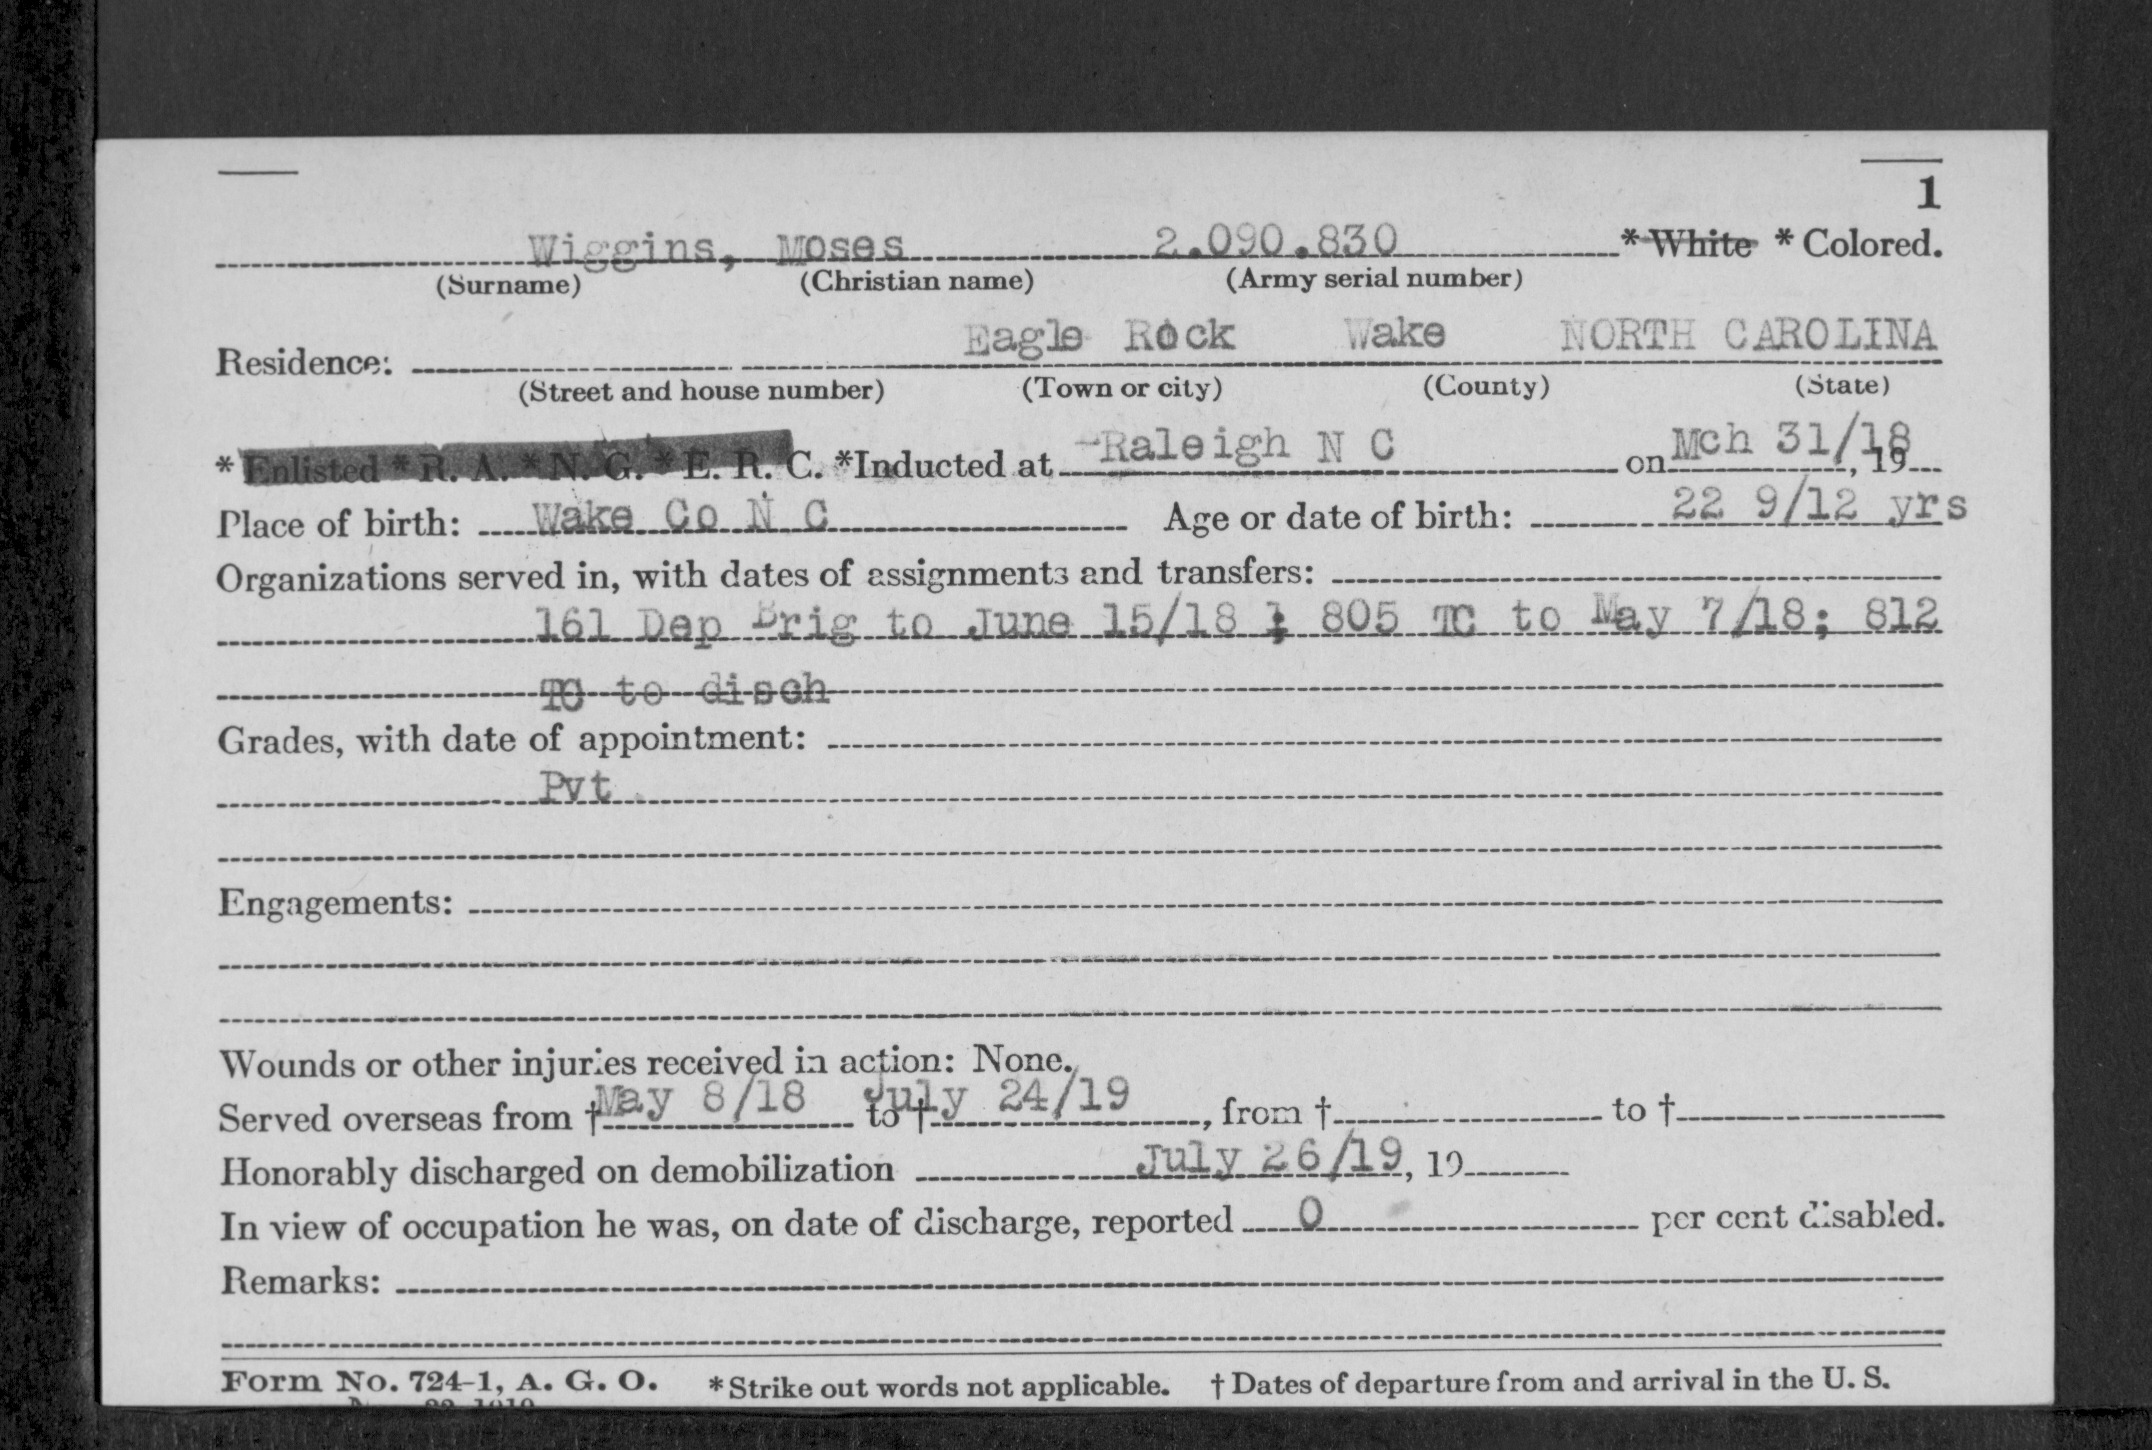 1
Wiggins, Moses 2.090.830 * White * Colored.
(Surname) (Christian name) (Army serial number)
Residence: Eagle Rock Wake NORTH CAROLINA
(Street and house number) (Town or city) (County) (State)
* Enlisted * R. A. * N. G. * E. R. C. *Inducted at -Raleigh N C on Mch 31/18, 19
Place of birth: Wake Co N C Age or date of birth: 22 9/12 yrs
Organizations served in, with dates of assignments and transfers:
161 Dep Brig to June 15/18 ; 805 TC to May 7/18; 812
TC to disch
Grades, with date of appointment:
Pvt
Engagements:
Wounds or other injuries received in action: None.
Served overseas from † May 8/18 to † July 24/19, from † to †
Honorably discharged on demobilization July 26/19, 19
In view of occupation he was, on date of discharge, reported 0 per cent disabled.
Remarks:
Form No. 724-1, A. G. O. * Strike out words not applicable. † Dates of departure from and arrival in the U. S.